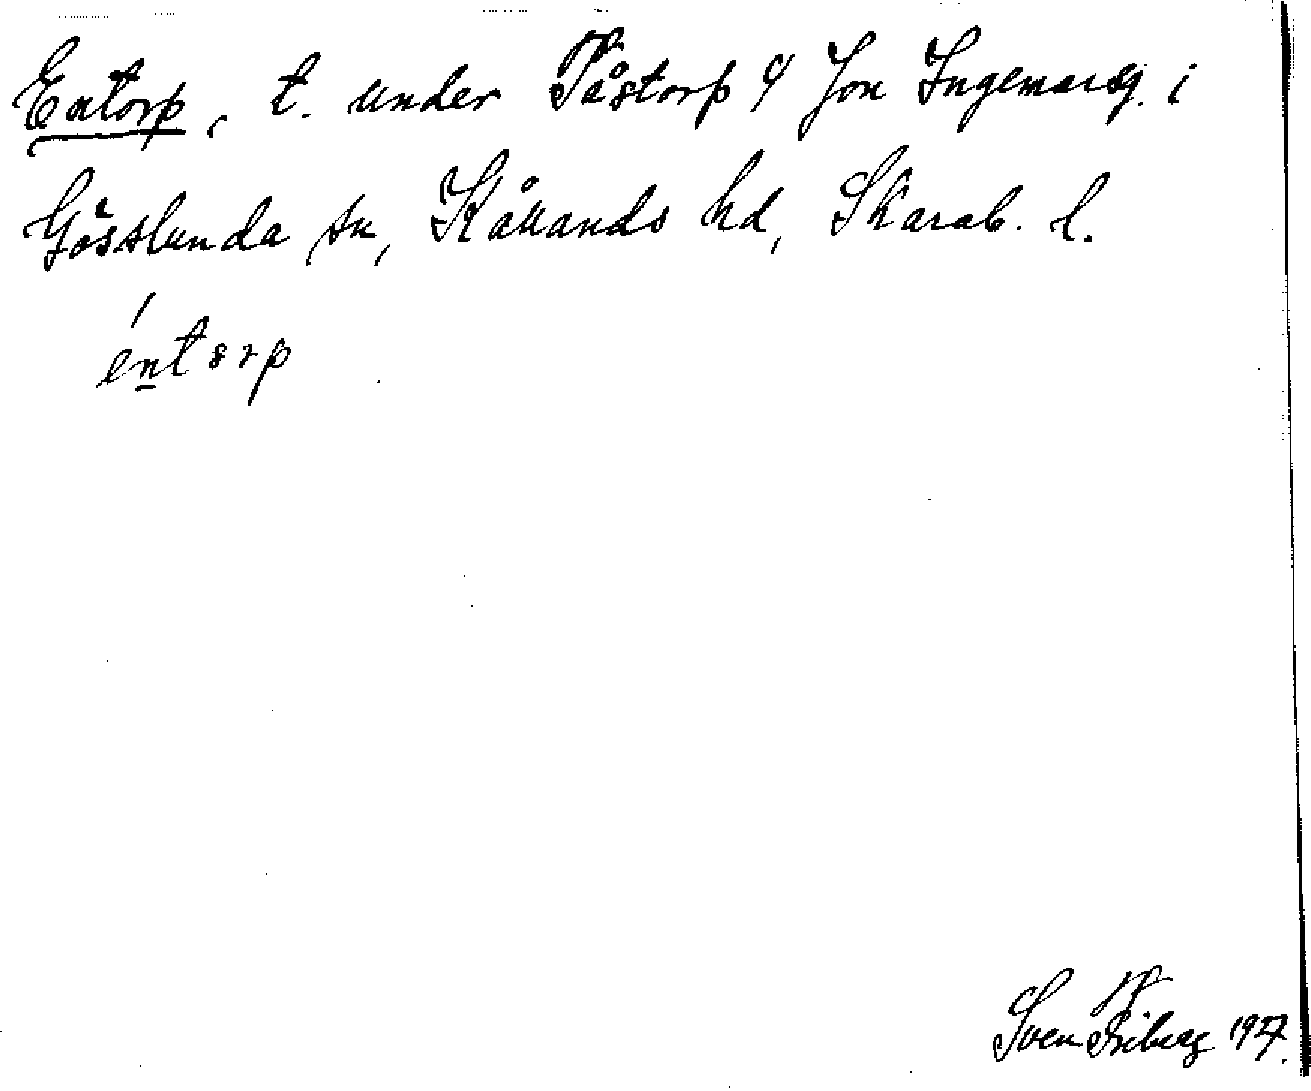 Entorp, t. under Påstorp 4 Jon Ingemarsg. i
Gösslunda sn, Kållands hd, Skarab. l.
éntorp
Sven Friberg 1927.